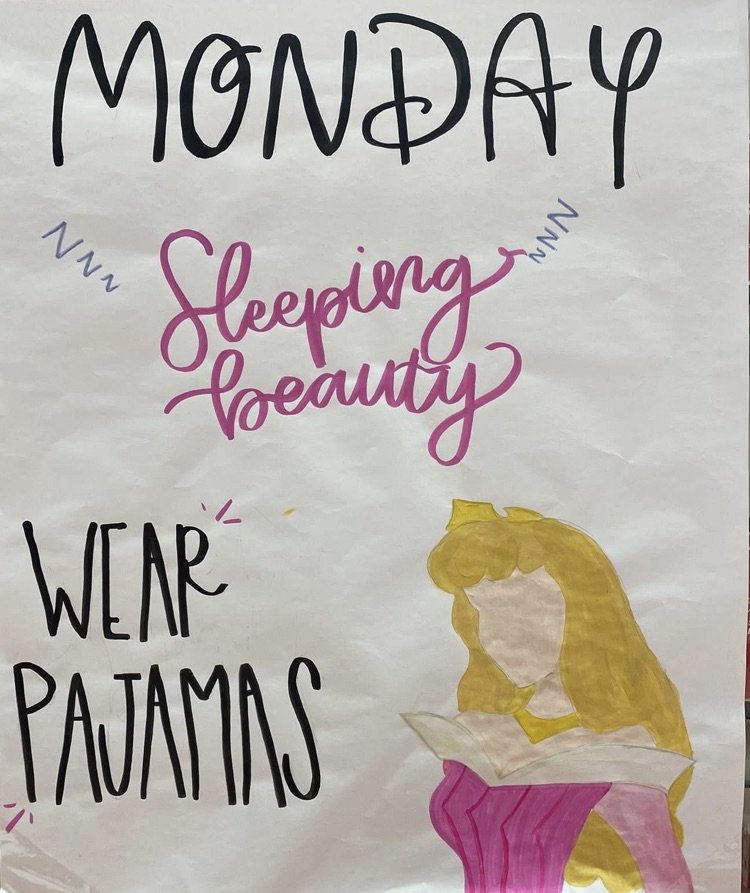 MONDAY
NNN
NNN
Sleeping
beauty
WEAR
PAJAMAS